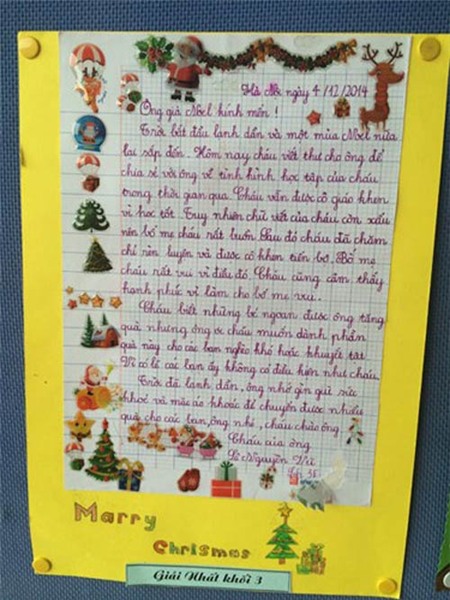 Hà Nội ngày 4/12/2014
Ông già Noel kính mến!
Trời bắt đầu lạnh dần và một mùa Noel nữa
lại sắp đến. Hôm nay cháu viết thư cho ông để
chia sẻ với ông về tình hình học tập của cháu
trong thời gian qua. Cháu vẫn được cô giáo khen
vì học tốt. Tuy nhiên chữ viết của cháu còn xấu
nên bố mẹ cháu rất buồn. Sau đó cháu đã chăm
chỉ rèn luyện và được cô khen tiến bộ. Bố mẹ
cháu rất vui vì điều đó. Cháu cũng cảm thấy
hạnh phúc vì làm cho bố mẹ vui.
Cháu biết những bé ngoan được ông tặng
quà nhưng ông ơi cháu muốn dành phần
quà này cho các bạn nghèo khó hoặc khuyết tật
Vì có lẽ các bạn ấy không có điều kiện như cháu.
Trời đã lạnh dần, ông nhớ gìn giữ sức
khoẻ và mặc áo khoác để chuyển được nhiều
quà cho các bạn, ông nhé, cháu chào ông
Cháu của ông
Lê Nguyên Vũ
Marry
Chrismas
Giải Nhất khối 3